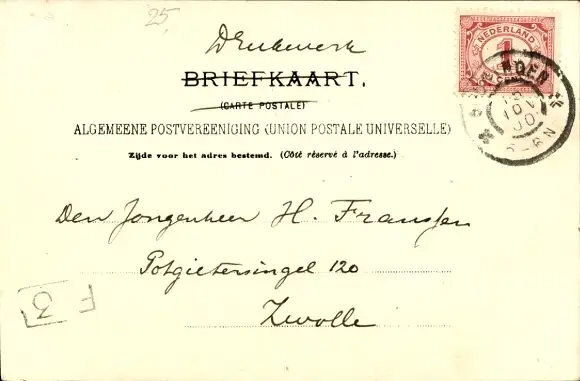 25.
Drukwerk
BRIEFKAART.
(CARTE POSTALE)
ALGEMEENE POSTVEREENIGING (UNION POSTALE UNIVERSELLE)
Zijde voor het adres bestemd. (Côté réservé à l'adresse.)
NEDERLAND
1
Den Jongenheer H. Franssen
Potgietersingel 120
Zwolle
F 3